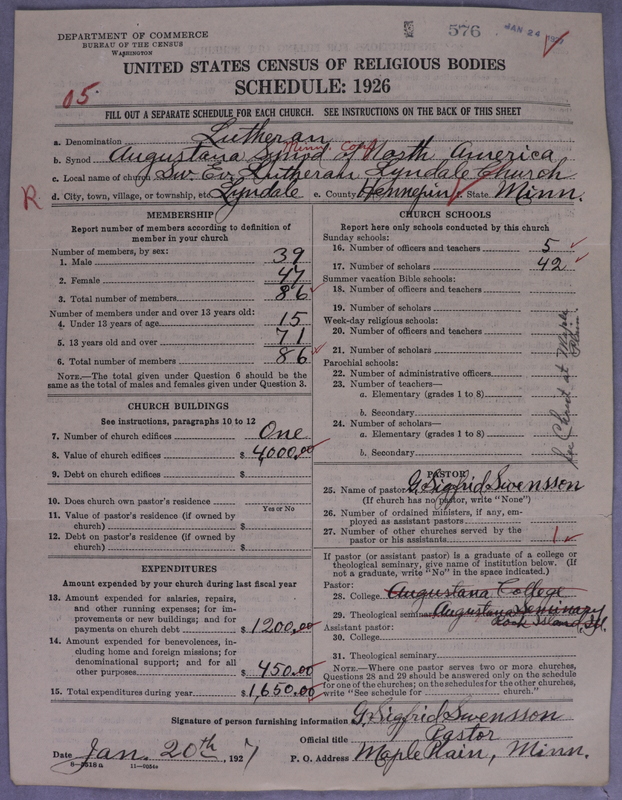 DEPARTMENT OF COMMERCE
BUREAU OF THE CENSUS
WASHINGTON
576
JAN 24
UNITED STATES CENSUS OF RELIGIOUS BODIES
SCHEDULE: 1926
05
FILL OUT A SEPARATE SCHEDULE FOR EACH CHURCH. SEE INSTRUCTIONS ON THE BACK OF THIS SHEET
a. Denomination Lutheran
Minn. Conf.
b. Synod Augustana Synod of North America
c. Local name of church Sw. Ev. Lutheran Lyndale Church
R d. City, town, village, or township, etc. Lyndale e. County Hennepin f. State Minn.
MEMBERSHIP
Report number of members according to definition of
member in your church
Number of members, by sex:
1. Male 39
2. Female 47
3. Total number of members 86
Number of members under and over 13 years old:
4. Under 13 years of age 15
5. 13 years old and over 71
6. Total number of members 86
NOTE.—The total given under Question 6 should be the
same as the total of males and females given under Question 3.
CHURCH BUILDINGS
See instructions, paragraphs 10 to 12
7. Number of church edifices One
8. Value of church edifices $ 4000.00
9. Debt on church edifices $
10. Does church own pastor's residence
Yes or No
11. Value of pastor's residence (if owned by
church) $
12. Debt on pastor's residence (if owned by
church) $
EXPENDITURES
Amount expended by your church during last fiscal year
13. Amount expended for salaries, repairs,
and other running expenses; for im-
provements or new buildings; and for
payments on church debt $ 1200.00
14. Amount expended for benevolences, in-
cluding home and foreign missions; for
denominational support; and for all
other purposes $ 450.00
15. Total expenditures during year $ 1,650.00
CHURCH SCHOOLS
Report here only schools conducted by this church
Sunday schools:
16. Number of officers and teachers 5
17. Number of scholars 42
Summer vacation Bible schools:
18. Number of officers and teachers
19. Number of scholars
Week-day religious schools:
20. Number of officers and teachers
21. Number of scholars
Parochial schools:
22. Number of administrative officers
23. Number of teachers—
a. Elementary (grades 1 to 8)
b. Secondary
24. Number of scholars—
a. Elementary (grades 1 to 8)
b. Secondary
See Church at Maple Plain.
PASTOR
25. Name of pastor G. Sigfrid Swensson
(If church has no pastor, write "None")
26. Number of ordained ministers, if any, em-
ployed as assistant pastors
27. Number of other churches served by the
pastor or his assistants 1
If pastor (or assistant pastor) is a graduate of a college or
theological seminary, give name of institution below. (If
not a graduate, write "No" in the space indicated.)
Pastor:
28. College Augustana College
29. Theological seminary Augustana Seminary
Rock Island, Ill.
Assistant pastor:
30. College
31. Theological seminary
NOTE.—Where one pastor serves two or more churches,
Questions 28 and 29 should be answered only on the schedule
for one of the churches; on the schedules for the other churches,
write "See schedule for church."
Signature of person furnishing information G. Sigfrid Swensson
Official title Pastor
Date Jan. 20th, 1927 P. O. Address Maple Plain, Minn.
8—5518 a 11—9054a